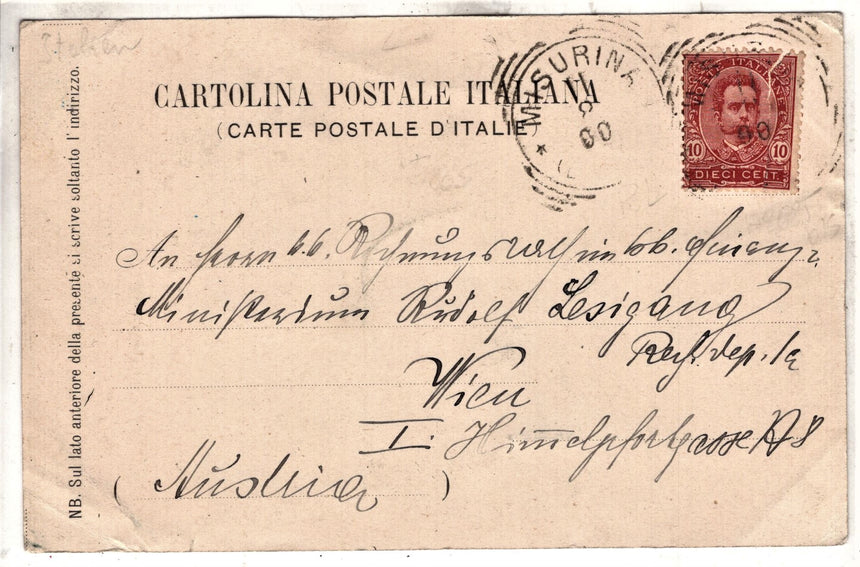 Italien
CARTOLINA POSTALE ITALIANA
(CARTE POSTALE D'ITALIE)
MISURINA
00
POSTE ITALIANE
10 10
DIECI CENT.
An Herrn k.k. Rechnungsrath im k.k. Finanz-
Ministerium Rudolf Lesigang
Rech. dep. 1a
Wien
I. Himmelpfortgasse № 8
(Austria)
NB. Sul lato anteriore della presente si scrive soltanto l'indirizzo.